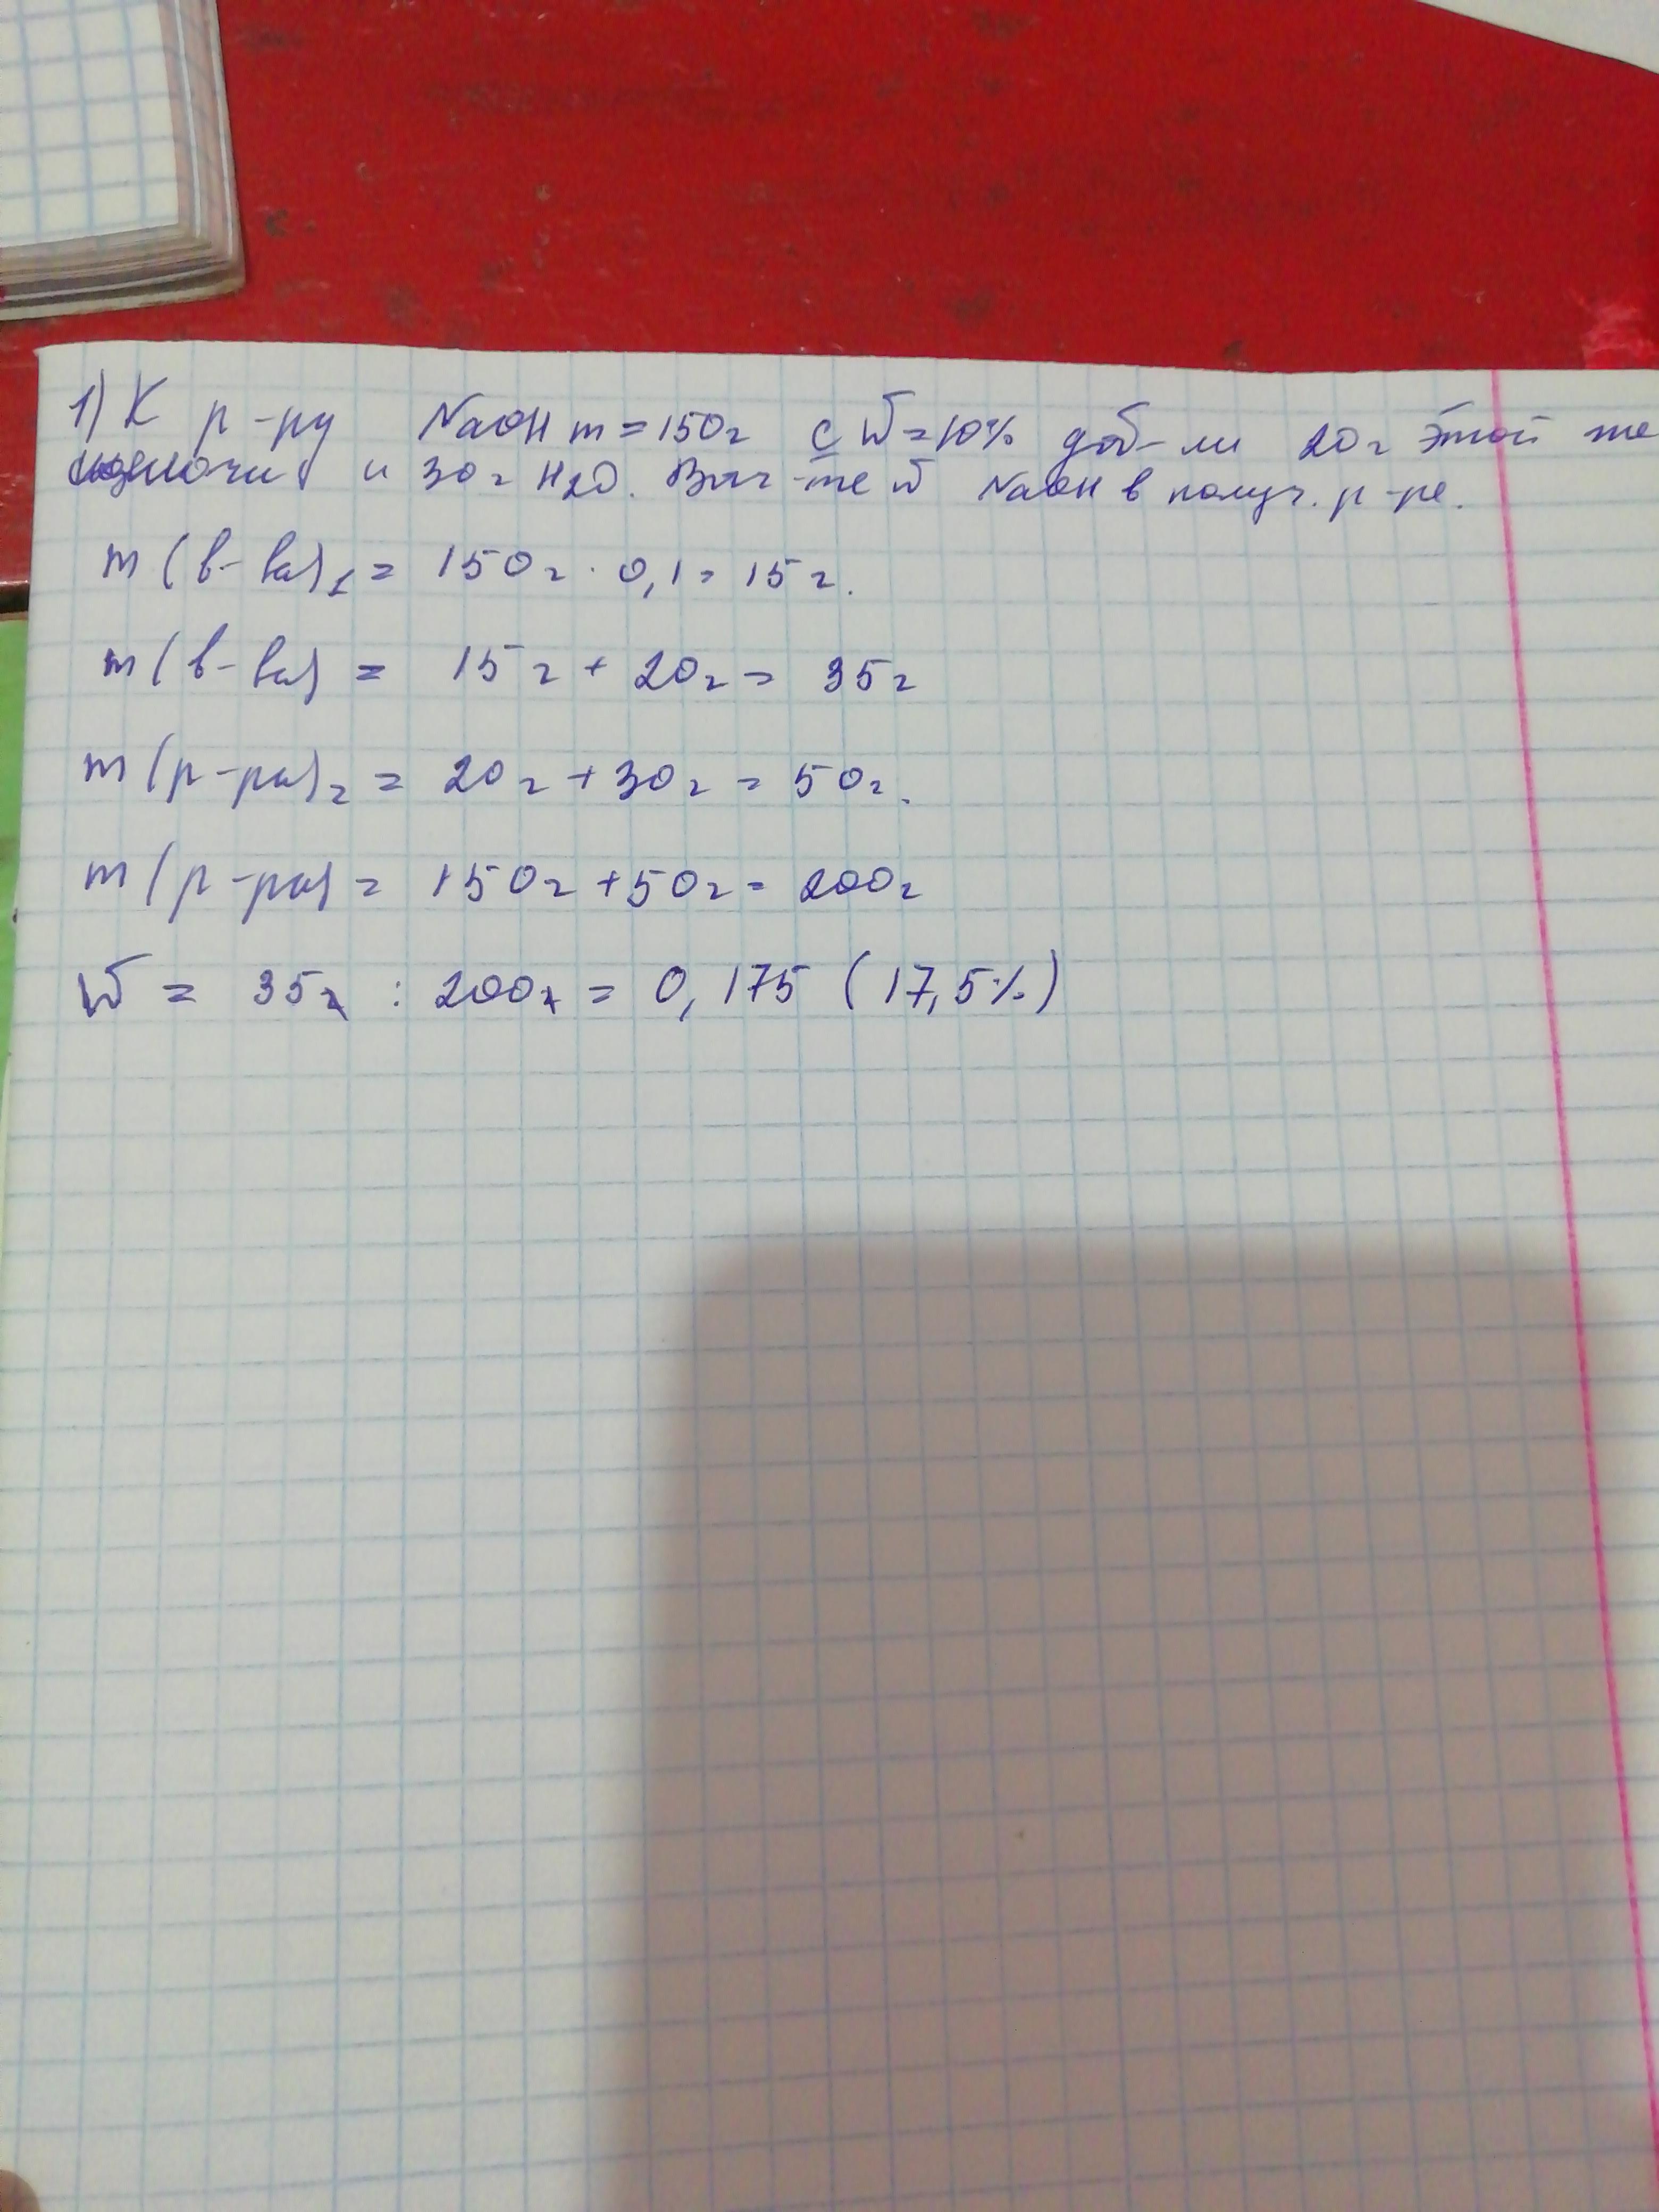 1) К р-ру NaOH m=150г с W=10% доб-ли 20г этой же
щелочи и 30г H2O. Выч-те W NaOH в получ. р-ре.
m(в-ва)1 = 150г · 0,1 = 15г.
m(в-ва) = 15г + 20г = 35г
m(р-ра)2 = 20г + 30г = 50г.
m(р-ра) = 150г + 50г = 200г
W = 35г : 200г = 0,175 (17,5%)